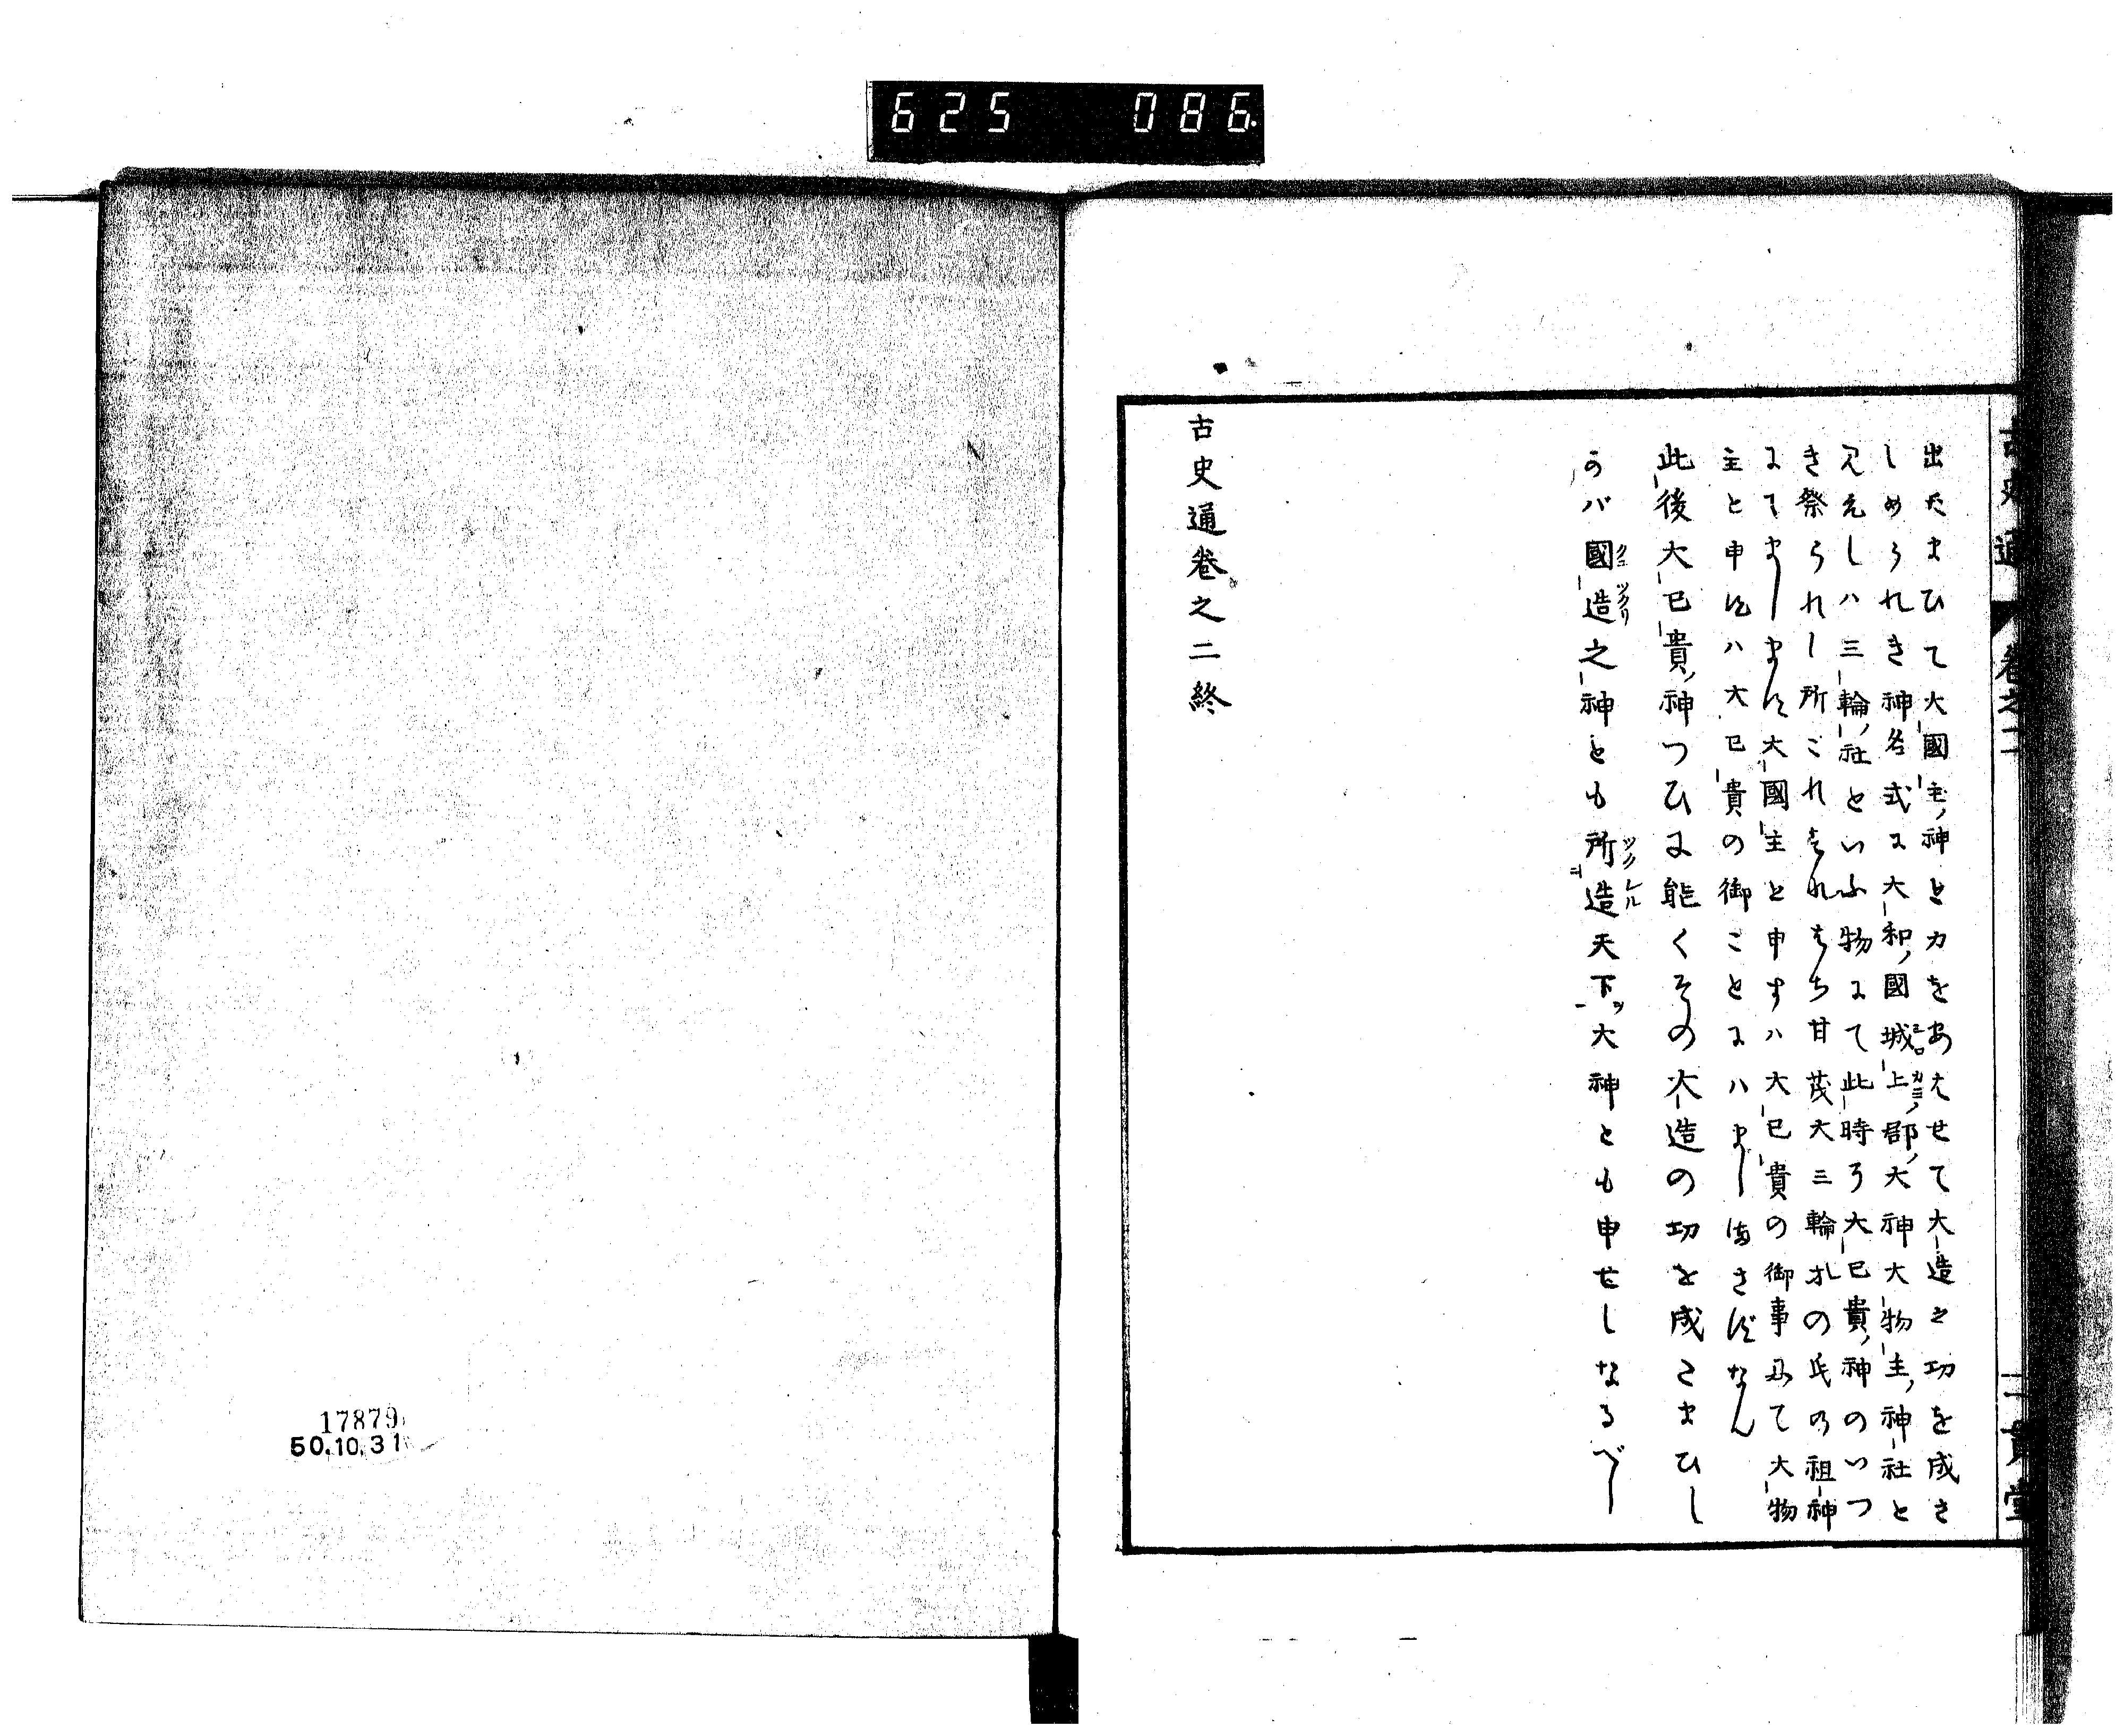 625 086
古史通 卷之二
出たまひて大國主ノ神と力をあはせて大造之功を成さ
しめられき神名式に大和ノ國城上ノ郡ノ大神大物主ノ神社と
見えしハ三輪ノ社といふ物にて此時ヲ大己貴ノ神のいつ
き祭られし所これすなはち甘茂大三輪等の氏の祖神
にてまします大國主と申すハ大己貴の御事にて大物
主と申スハ大己貴の御ことにハましまさずなん
此後大己貴ノ神つひに能くその大造の功を成さまひし
かバ國造之神とも所造天下ツ大神とも申せしなるべし
古史通卷之二終
17879
50.10.31